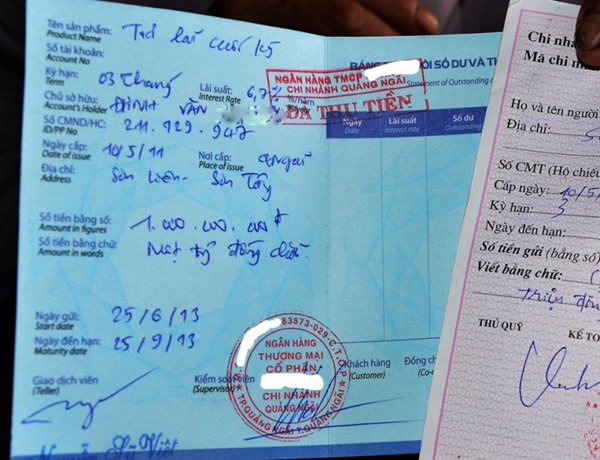 Tên sản phẩm: Trả lãi cuối kỳ
Product Name
Số tài khoản:
Account No
Kỳ hạn: 03 tháng Lãi suất: 6,7% %/năm
Term Interest Rate
Chủ sở hữu: ĐINH VĂN
Account's Holder
Số CMND/HC: 211.729.947
ID/PP No
Ngày cấp: 10/5/11 Nơi cấp:
Date of issue Place of issue
Địa chỉ: Sơn Tây
Address
Số tiền bằng số: 1.000.000.000đ
Amount in figures
Số tiền bằng chữ: Một tỷ đồng chẵn.
Amount in words
Ngày gửi: 25/6/13
Start date
Ngày đến hạn: 25/9/13
Maturity date
Giao dịch viên Kiểm soát viên
(Teller) (Supervisor)
SỐ DƯ VÀ
Statement of Outstanding
NGÂN HÀNG TMCP
CHI NHÁNH QUẢNG NGÃI
ĐÃ THU TIỀN
Ngày Lãi suất Số dư
Date Interest rate Outstanding
83873-029-C.T.C.P
NGÂN HÀNG
THƯƠNG MẠI
CỔ PHẦN
CHI NHÁNH
QUẢNG NGÃI
TP.QUẢNG NGÃI T.QUẢNG NGÃI
Khách hàng
(Customer)
Chi nhá
Mã chi
Họ và tên người
Địa chỉ:
Số CMT (Hộ chiếu
Cấp ngày: 10/5
Kỳ hạn: 3
Ngày đến hạn:
Số tiền gửi (bằng số)
Viết bằng chữ:
triệu
THỦ QUỸ KẾ TO